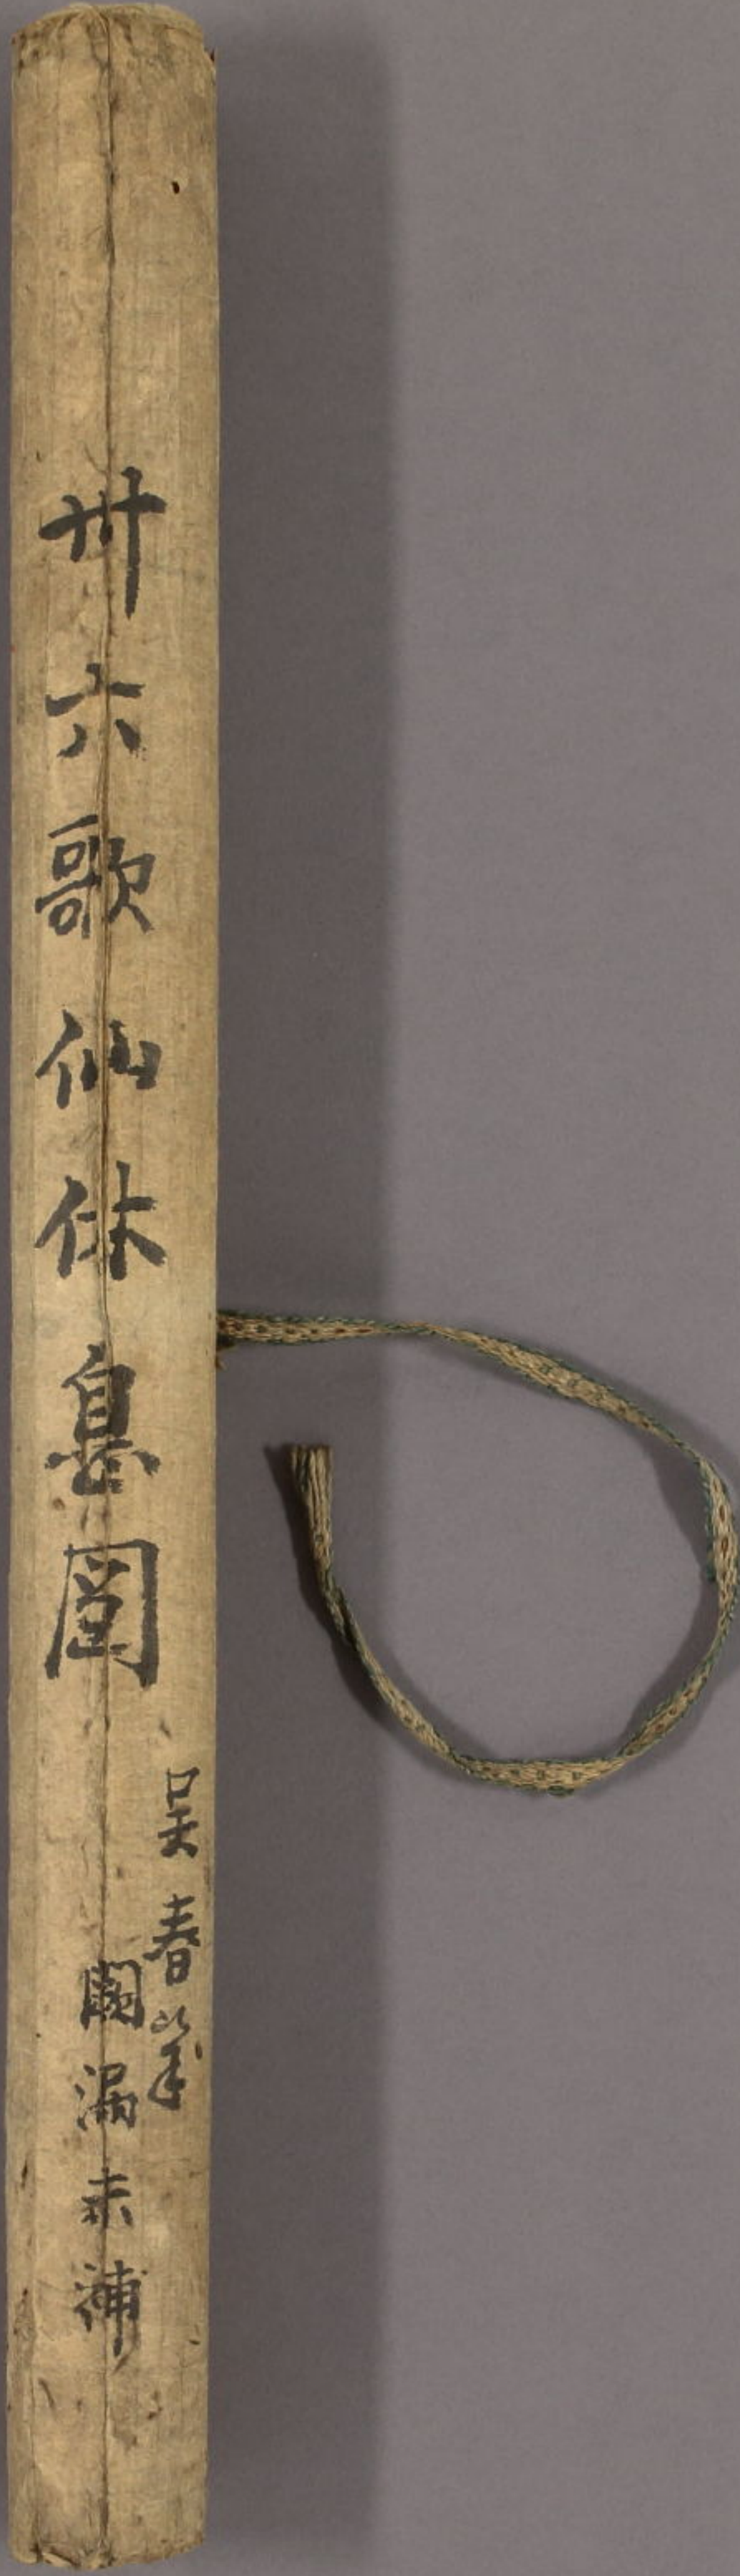 卅六歌仙休息圖
吴春筆
闕漏未補